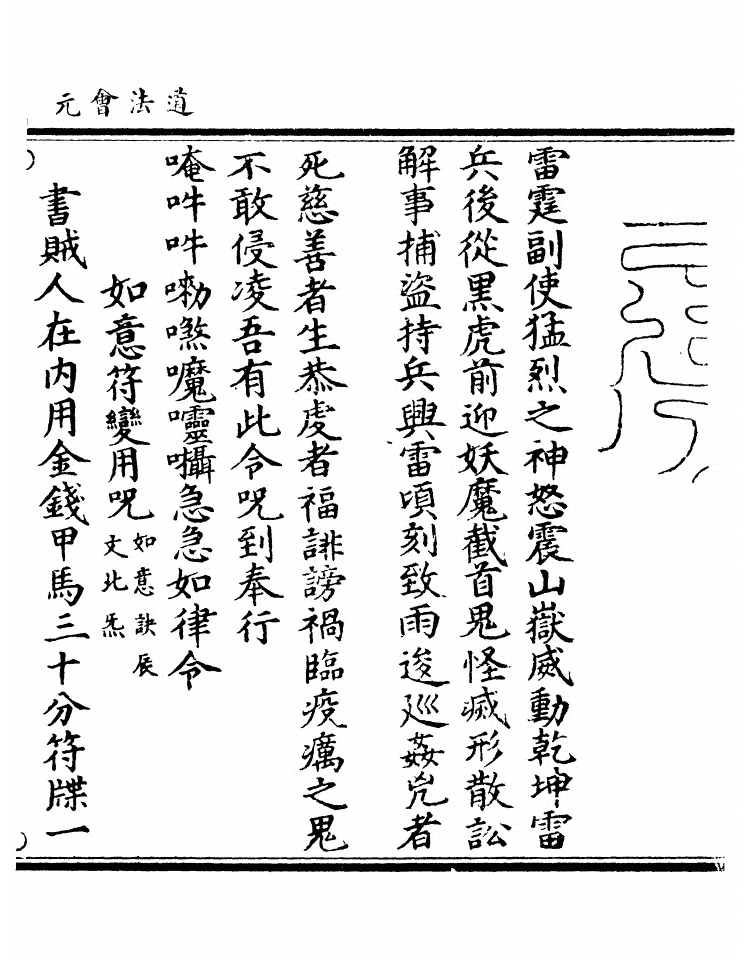 道法會元
雷霆副使猛烈之神怒震山嶽威動乾坤雷
兵後從黑虎前迎妖魔截首鬼怪滅形散訟
解事捕盜持兵興雷頃刻致雨逡巡姦兇者
死慈善者生恭虔者福誹謗禍臨疫癘之鬼
不敢侵凌吾有此令咒到奉行
唵吽吽嘞㗫嚤囕囁急急如律令
如意符變用咒如意訣辰文北炁
書賊人在內用金錢甲馬三十分符牒一